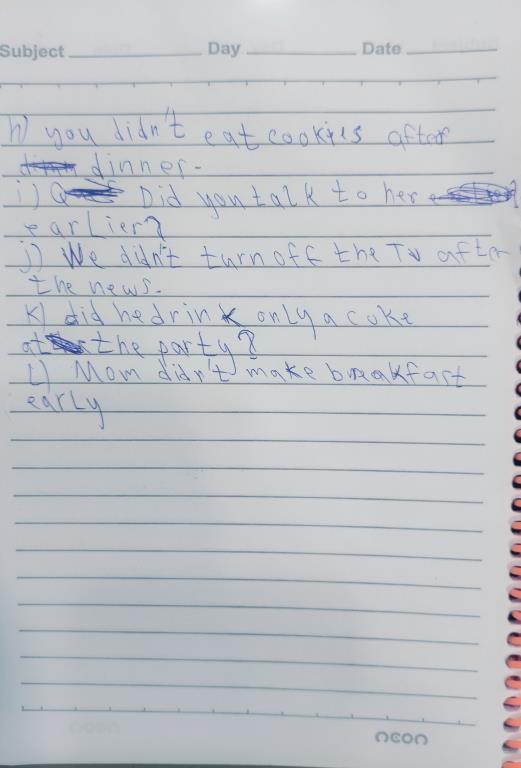 Subject Day Date
h) you didn't eat cookies after
dinner.
i) Did you talk to her
earlier?
j) We didn't turn off the TV after
the news.
K) did he drink only a coke
at the party?
L) Mom didn't make breakfast
early
neon